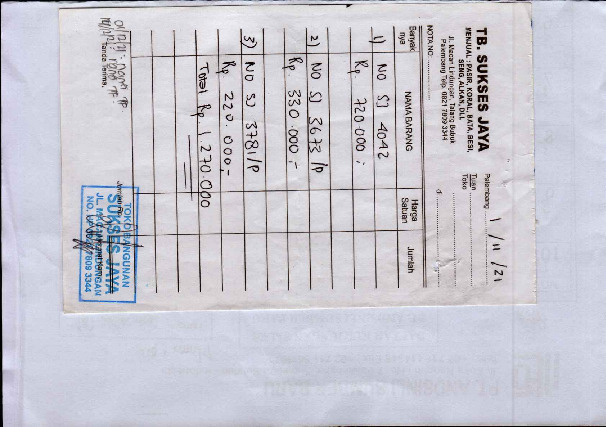 TB. SUKSES JAYA
MENJUAL : PASIR, KORAL, BATA, BESI,
SENG, ALKAN, DLL
Jl. Macan Lindungan, Talang Buluk
Palembang Telp. 0821 7809 3344
Palembang 1/11/21
Tuan
Toko
NOTA NO.
Banyak nya NAMA BARANG Harga Satuan Jumlah
1) NO SJ 4042
Rp. 720 000,-
2) NO SJ 3673/P
Rp 330.000,-
3) NO SJ 3781/P
Rp 220.000,-
Total Rp 1 270 000
Tanda Terima,
TOKO BANGUNAN
SUKSES JAYA